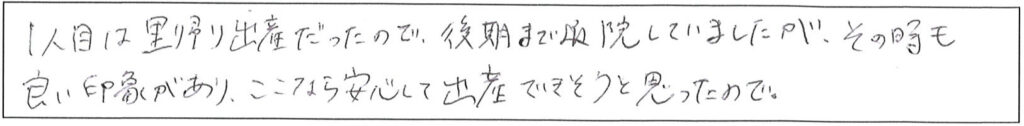 1人目は里帰り出産だったので、後期まで通院していましたが、その時も
良い印象があり、ここなら安心して出産できそうと思ったので。